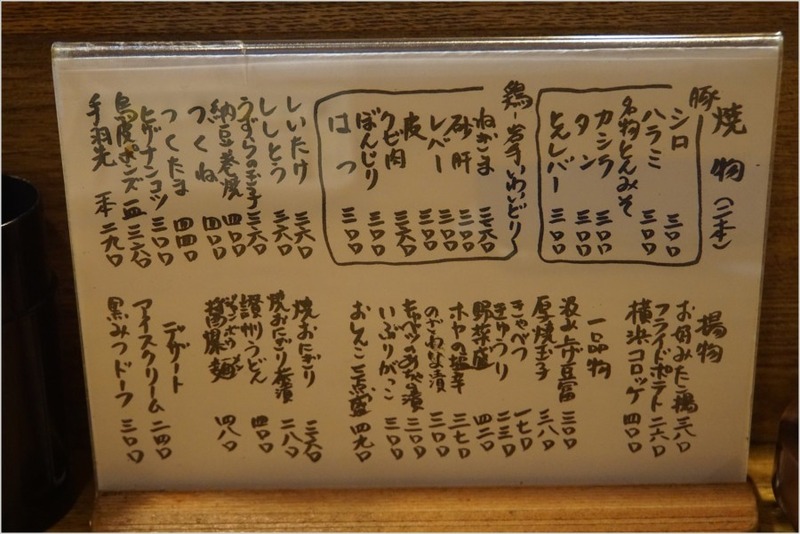 焼物（二本）
豚
シロ 三〇〇
ハラミ 三〇〇
名物とんみそ
カシラ 三〇〇
タン 三〇〇
とんレバー 三〇〇
鶏－岩手いわいどり
ねぎま 三六〇
砂肝 三〇〇
レバー 三〇〇
皮 三〇〇
クビ肉 三六〇
ぼんじり 三〇〇
はつ 三〇〇
しいたけ 三六〇
ししとう 三六〇
うずらの玉子 三六〇
納豆巻焼 四〇〇
つくね 四〇〇
つくたま 四四〇
ヒザナンコツ 三〇〇
鳥皮ポンズ 一皿 三六〇
手羽先 一本 二九〇
揚物
お好みた揚 三八〇
フライドポテト 二六〇
横浜コロッケ 四〇〇
一品物
汲み上げ豆富 三〇〇
厚焼玉子 三八〇
きゃべつ 一七〇
きゅうり 二三〇
野菜盛 四二〇
ホヤの塩辛 三七〇
のざわな漬 三〇〇
キャベツのあさの漬 三〇〇
いぶりがっこ 三〇〇
おしんこ三点盛 四九〇
焼おにぎり 三六〇
焼おにぎり茶漬 二八〇
讃州うどん 四〇〇
醤爆麺 四八〇
デザート
アイスクリーム 二四〇
黒みつドーフ 三〇〇